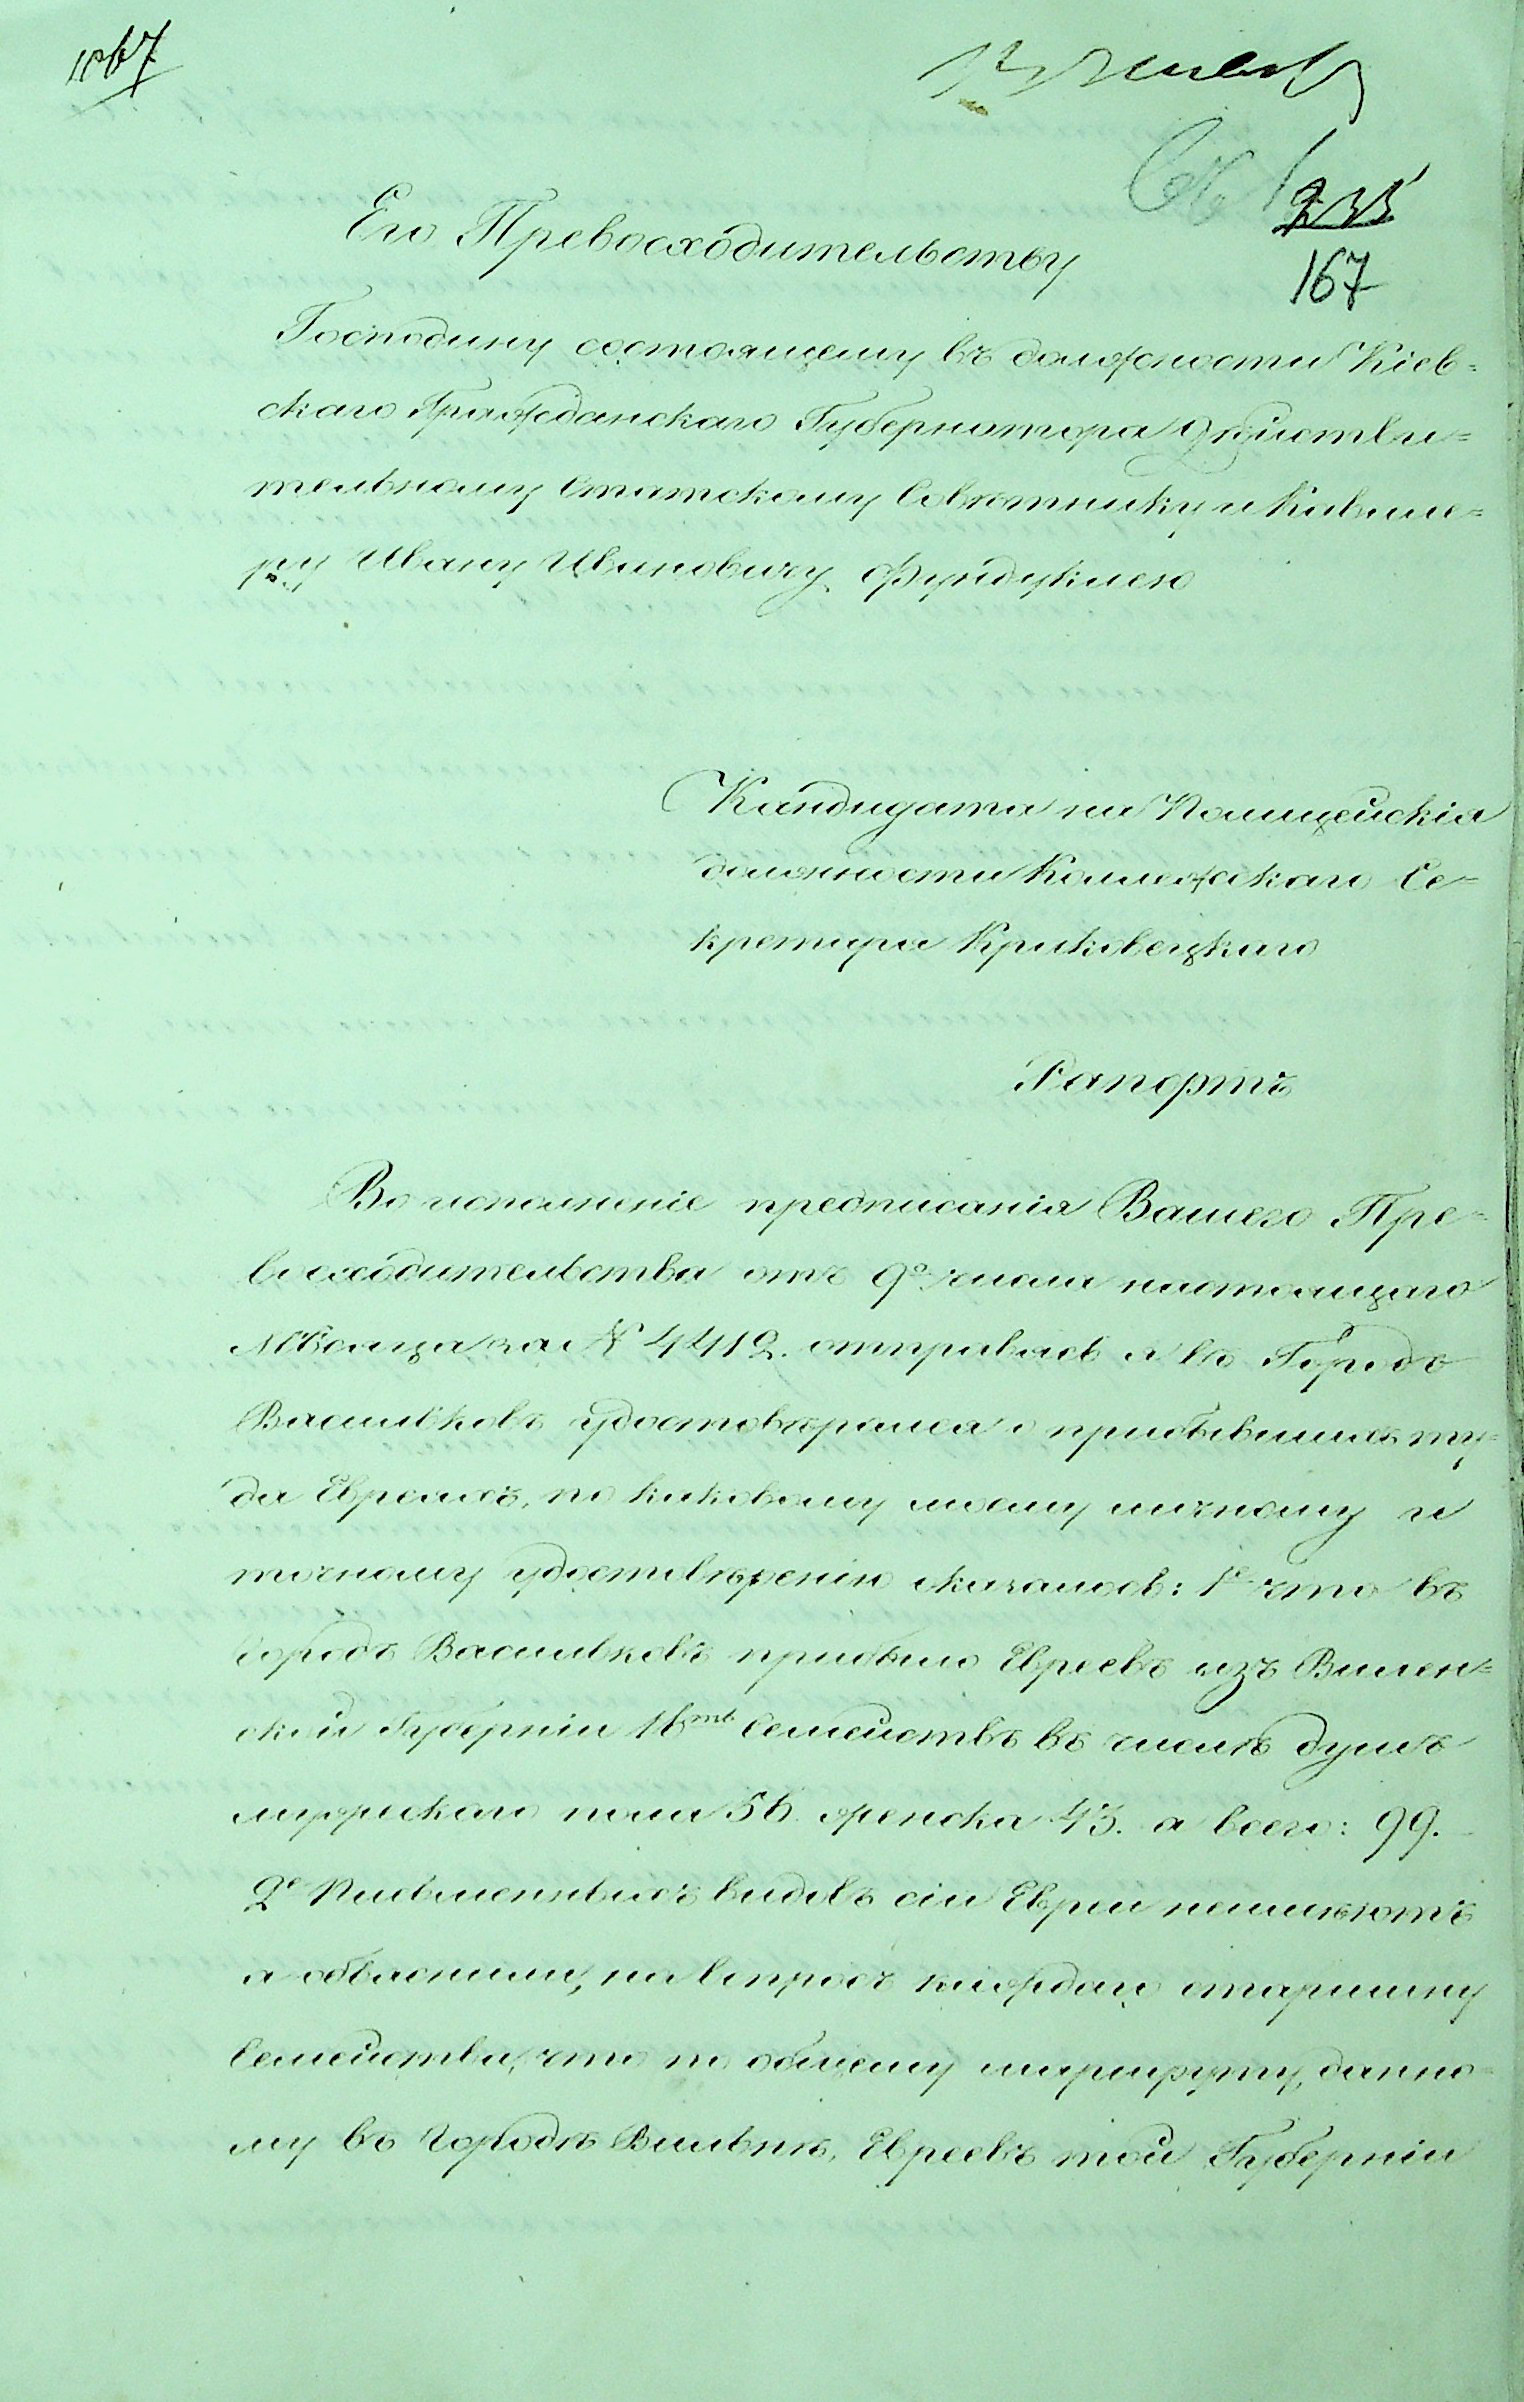 1067
235
167
Его Превосходительству
Господину состоящему въ должности Кіев=
скаго Гражданскаго Губернатора Действи=
тельному Статскому Советнику и Кавале=
ру Ивану Ивановичу Фундуклею
Кандидата на Полицейскія
должности Коллежскаго Се=
кретаря Криковецкаго
Рапортъ
Во исполненіе предписанія Вашего Пре=
восходительства отъ 9го числа настоящаго
Месяца за № 4412. отправясь я въ Городъ
Васильковъ удостоверился о прибывшихъ ту=
да Евреяхъ, по каковому моему личному и
точному удостоверенію оказалось: 1е что въ
городъ Васильковъ прибыло Евреевъ изъ Вилен=
ской Губерніи 16ть Семействъ въ числѣ душъ
мужескаго пола 56. женска 43. а всего: 99.
2е Письменныхъ видовъ сіи Евреи неимѣютъ
а объяснили, на вопросъ каждаго старшину
Семейства, что по общему маршруту, данно=
му въ городѣ Вильнѣ, Евреевъ той Губерніи